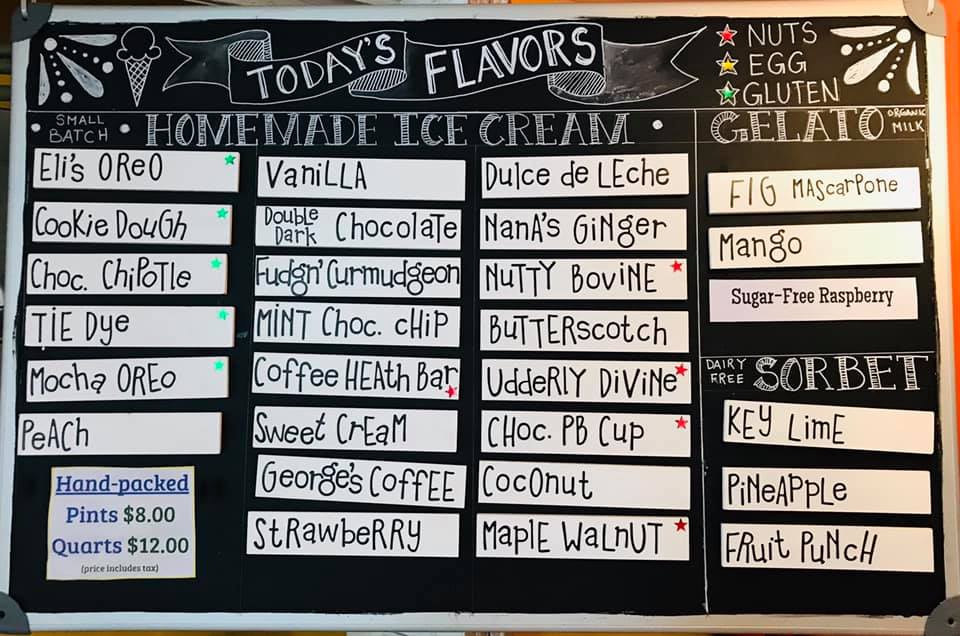 TODAY'S FLAVORS
NUTS
EGG
GLUTEN
SMALL
BATCH
HOMEMADE ICE CREAM
Eli's OReO
Cookie DouGh
Choc. ChiPoTle
TiE Dye
Mocha OREo
PeACh
Hand-packed
Pints $8.00
Quarts $12.00
(price includes tax)
VaniLLA
Double
Dark Chocolate
Fudgn' Curmudgeon
MiNT Choc. cHiP
Coffee HEAth Bar
Sweet CrEaM
George's CoffEE
StRAwbeRRy
Dulce de LEche
NanA's GiNger
NuTTy BoviNE
BuTTERscotch
UddeRLy DiViNe
CHoc. PB Cup
CocOnut
MaplE WaLnUT
GELATO
ORGANIC
MILK
FiG MAScarPone
Mango
Sugar-Free Raspberry
DAIRY
FREE SORBET
KEy LimE
PiNeAPPLe
FRuit PuNcH